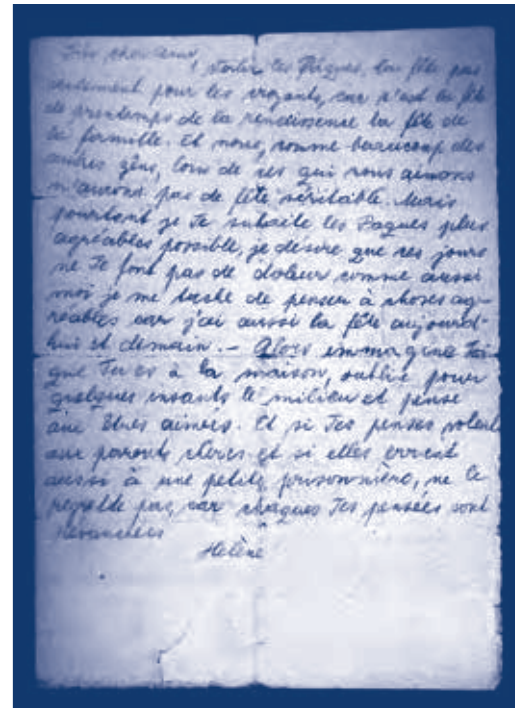 Très cher ami,
voilà les Pâques, la fête pas
seulement pour les croyants, car c'est la fête
de printemps de la rendissence la fête de
la formille. Et nous, comme beaucoup des
autres gêns, loin de ces qui nous aimons
n'aurons pas de fête véritable. Mais
pourtant je Te suhaite les Pâques plus
agréables possible, je desire que ces jours
ne Te font pas de doleur comme aussi
moi je me tâche de penser à choses ag-
réables car j'ai aussi la fête aujourd-
hui et demain. – Alors immagine toi
que Tu es à la maison, oublie pour
quelques insants le milieu et pense
aux êtres aimées. Et si Tes penses volent
aux parents chères et si elles errent
aussi à une petite prisonnière, ne le
regrette pas, car chaques Tes pensées sont
Hélène